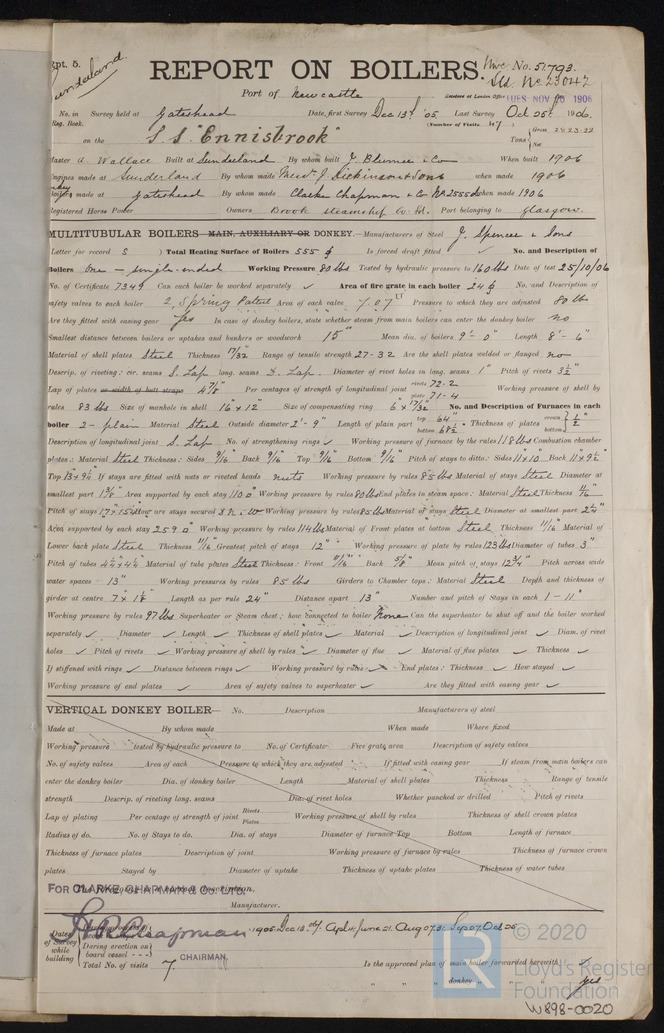 Rpt. 5.
Sunderland.
REPORT ON BOILERS.
Nwc No. 51793.
Sld. No 23042
Port of Newcastle
Received at London Office TUES. NOV 1906
No. in Survey held at Gateshead Date, first Survey Dec 13th '05 Last Survey Oct 25th 1906.
Reg. Book. (Number of Visits 7)
on the S.S. "Ennisbrook"
Tons { Gross 2823.22
Net
Master A. Wallace Built at Sunderland By whom built J. Blumer & Co When built 1906
Engines made at Sunderland By whom made Messrs J. Dickinson & Sons when made 1906
Boilers made at Gateshead By whom made Clarke Chapman & Co No 2555 when made 1906
Registered Horse Power Owners Brook Steamship Co. Ld. Port belonging to Glasgow.
MULTITUBULAR BOILERS MAIN, AUXILIARY OR DONKEY.—Manufacturers of Steel J. Spencer & Sons
(Letter for record S ) Total Heating Surface of Boilers 555 Is forced draft fitted ✓ No. and Description of
Boilers One – single-ended Working Pressure 80 lbs Tested by hydraulic pressure to 160 lbs Date of test 25/10/06
No. of Certificate 7349 Can each boiler be worked separately ✓ Area of fire grate in each boiler 24 No. and Description of
safety valves to each boiler 2, Spring Patent Area of each valve 7.07 Pressure to which they are adjusted 80 lb
Are they fitted with easing gear Yes In case of donkey boilers, state whether steam from main boilers can enter the donkey boiler no
Smallest distance between boilers or uptakes and bunkers or woodwork 15" Mean dia. of boilers 9'-0" Length 8'-6"
Material of shell plates Steel Thickness 17/32 Range of tensile strength 27-32 Are the shell plates welded or flanged no
Descrip. of riveting: cir. seams S. Lap long. seams D. Lap. Diameter of rivet holes in long. seams 1" Pitch of rivets 3 1/2"
Lap of plates or width of butt straps 4 7/8" Per centages of strength of longitudinal joint rivets 72.2 plate 71.4 Working pressure of shell by
rules 83 lbs Size of manhole in shell 16" x 12" Size of compensating ring 6" x 17/32" No. and Description of Furnaces in each
boiler 2 - plain Material Steel Outside diameter 2'-9" Length of plain part top 64" bottom 68 1/2" Thickness of plates crown bottom } 1/2"
Description of longitudinal joint S. Lap No. of strengthening rings ✓ Working pressure of furnace by the rules 118 lbs Combustion chamber
plates: Material Steel Thickness: Sides 9/16 Back 9/16 Top 9/16 Bottom 9/16 Pitch of stays to ditto: Sides 11" x 10" Back 11" x 9 1/2"
Top 13" x 9 1/4" If stays are fitted with nuts or riveted heads nuts Working pressure by rules 85 lbs Material of stays Steel Diameter at
smallest part 1 3/8" Area supported by each stay 110 Working pressure by rules 80 lbs End plates in steam space: Material Steel Thickness 11/16
Pitch of stays How are stays secured Working pressure by rules 85 lbs Material of stays Steel Diameter at smallest part 2 1/4"
Area supported by each stay 259 Working pressure by rules 114 lbs Material of Front plates at bottom Steel Thickness 11/16" Material of
Lower back plate Steel Thickness 11/16 Greatest pitch of stays 12" Working pressure of plate by rules 123 lbs Diameter of tubes 3"
Pitch of tubes 4 1/4 x 4 1/4 Material of tube plates Steel Thickness: Front 11/16" Back 5/8" Mean pitch of stays 12 3/4" Pitch across wide
water spaces – 13" Working pressures by rules 85 lbs Girders to Chamber tops: Material Steel Depth and thickness of
girder at centre 7" x 1 1/8" Length as per rule 24" Distance apart 13" Number and pitch of Stays in each 1 – 11"
Working pressure by rules 97 lbs Superheater or Steam chest; how connected to boiler None Can the superheater be shut off and the boiler worked
separately ✓ Diameter ✓ Length ✓ Thickness of shell plates ✓ Material ✓ Description of longitudinal joint ✓ Diam. of rivet
holes ✓ Pitch of rivets ✓ Working pressure of shell by rules ✓ Diameter of flue ✓ Material of flue plates ✓ Thickness ✓
If stiffened with rings ✓ Distance between rings ✓ Working pressure by rules ✓ End plates: Thickness ✓ How stayed ✓
Working pressure of end plates ✓ Area of safety valves to superheater ✓ Are they fitted with easing gear ✓
VERTICAL DONKEY BOILER— No. Description Manufacturers of steel
Made at By whom made When made Where fixed
Working pressure tested by hydraulic pressure to No. of Certificate Fire grate area Description of safety valves
No. of safety valves Area of each Pressure to which they are adjusted If fitted with easing gear If steam from main boilers can
enter the donkey boiler Dia. of donkey boiler Length Material of shell plates Thickness Range of tensile
strength Descrip. of riveting long. seams Dia. of rivet holes Whether punched or drilled Pitch of rivets
Lap of plating Per centage of strength of joint Rivets Plates Working pressure of shell by rules Thickness of shell crown plates
Radius of do. No. of Stays to do. Dia. of stays Diameter of furnace Top Bottom Length of furnace
Thickness of furnace plates Description of joint Working pressure of furnace by rules Thickness of furnace crown
plates Stayed by Diameter of uptake Thickness of uptake plates Thickness of water tubes
FOR CLARKE, CHAPMAN & CO. LTD.
Manufacturer.
Chapman
CHAIRMAN.
Dates of Survey while building
During erection on board vessel - - -
Total No. of visits 7
1905 Dec 13. 06 Apl June 21. Aug 07. Sep 07. Oct 25
Is the approved plan of main boiler forwarded herewith
" " " donkey " " " yes
© 2020
Lloyd's Register
Foundation
W898-0020